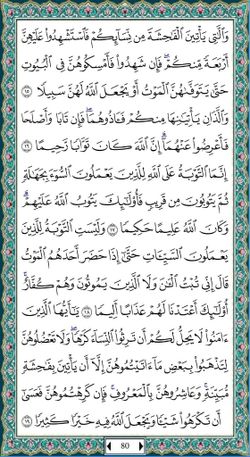 وَٱلَّٰتِي يَأۡتِينَ ٱلۡفَٰحِشَةَ مِن نِّسَآئِكُمۡ فَٱسۡتَشۡهِدُواْ عَلَيۡهِنَّ
أَرۡبَعَةٗ مِّنكُمۡۖ فَإِن شَهِدُواْ فَأَمۡسِكُوهُنَّ فِي ٱلۡبُيُوتِ
حَتَّىٰ يَتَوَفَّىٰهُنَّ ٱلۡمَوۡتُ أَوۡ يَجۡعَلَ ٱللَّهُ لَهُنَّ سَبِيلٗا ١٥
وَٱلَّذَانِ يَأۡتِيَٰنِهَا مِنكُمۡ فَـَٔاذُوهُمَاۖ فَإِن تَابَا وَأَصۡلَحَا
فَأَعۡرِضُواْ عَنۡهُمَآۗ إِنَّ ٱللَّهَ كَانَ تَوَّابٗا رَّحِيمًا ١٦
إِنَّمَا ٱلتَّوۡبَةُ عَلَى ٱللَّهِ لِلَّذِينَ يَعۡمَلُونَ ٱلسُّوٓءَ بِجَهَٰلَةٖ
ثُمَّ يَتُوبُونَ مِن قَرِيبٖ فَأُوْلَٰٓئِكَ يَتُوبُ ٱللَّهُ عَلَيۡهِمۡۗ
وَكَانَ ٱللَّهُ عَلِيمًا حَكِيمٗا ١٧ وَلَيۡسَتِ ٱلتَّوۡبَةُ لِلَّذِينَ
يَعۡمَلُونَ ٱلسَّيِّـَٔاتِ حَتَّىٰٓ إِذَا حَضَرَ أَحَدَهُمُ ٱلۡمَوۡتُ
قَالَ إِنِّي تُبۡتُ ٱلۡـَٰٔنَ وَلَا ٱلَّذِينَ يَمُوتُونَ وَهُمۡ كُفَّارٌۚ
أُوْلَٰٓئِكَ أَعۡتَدۡنَا لَهُمۡ عَذَابًا أَلِيمٗا ١٨ يَٰٓأَيُّهَا ٱلَّذِينَ
ءَامَنُواْ لَا يَحِلُّ لَكُمۡ أَن تَرِثُواْ ٱلنِّسَآءَ كَرۡهٗاۖ وَلَا تَعۡضُلُوهُنَّ
لِتَذۡهَبُواْ بِبَعۡضِ مَآ ءَاتَيۡتُمُوهُنَّ إِلَّآ أَن يَأۡتِينَ بِفَٰحِشَةٖ
مُّبَيِّنَةٖۚ وَعَاشِرُوهُنَّ بِٱلۡمَعۡرُوفِۚ فَإِن كَرِهۡتُمُوهُنَّ فَعَسَىٰٓ
أَن تَكۡرَهُواْ شَيۡـٔٗا وَيَجۡعَلَ ٱللَّهُ فِيهِ خَيۡرٗا كَثِيرٗا ١٩
80